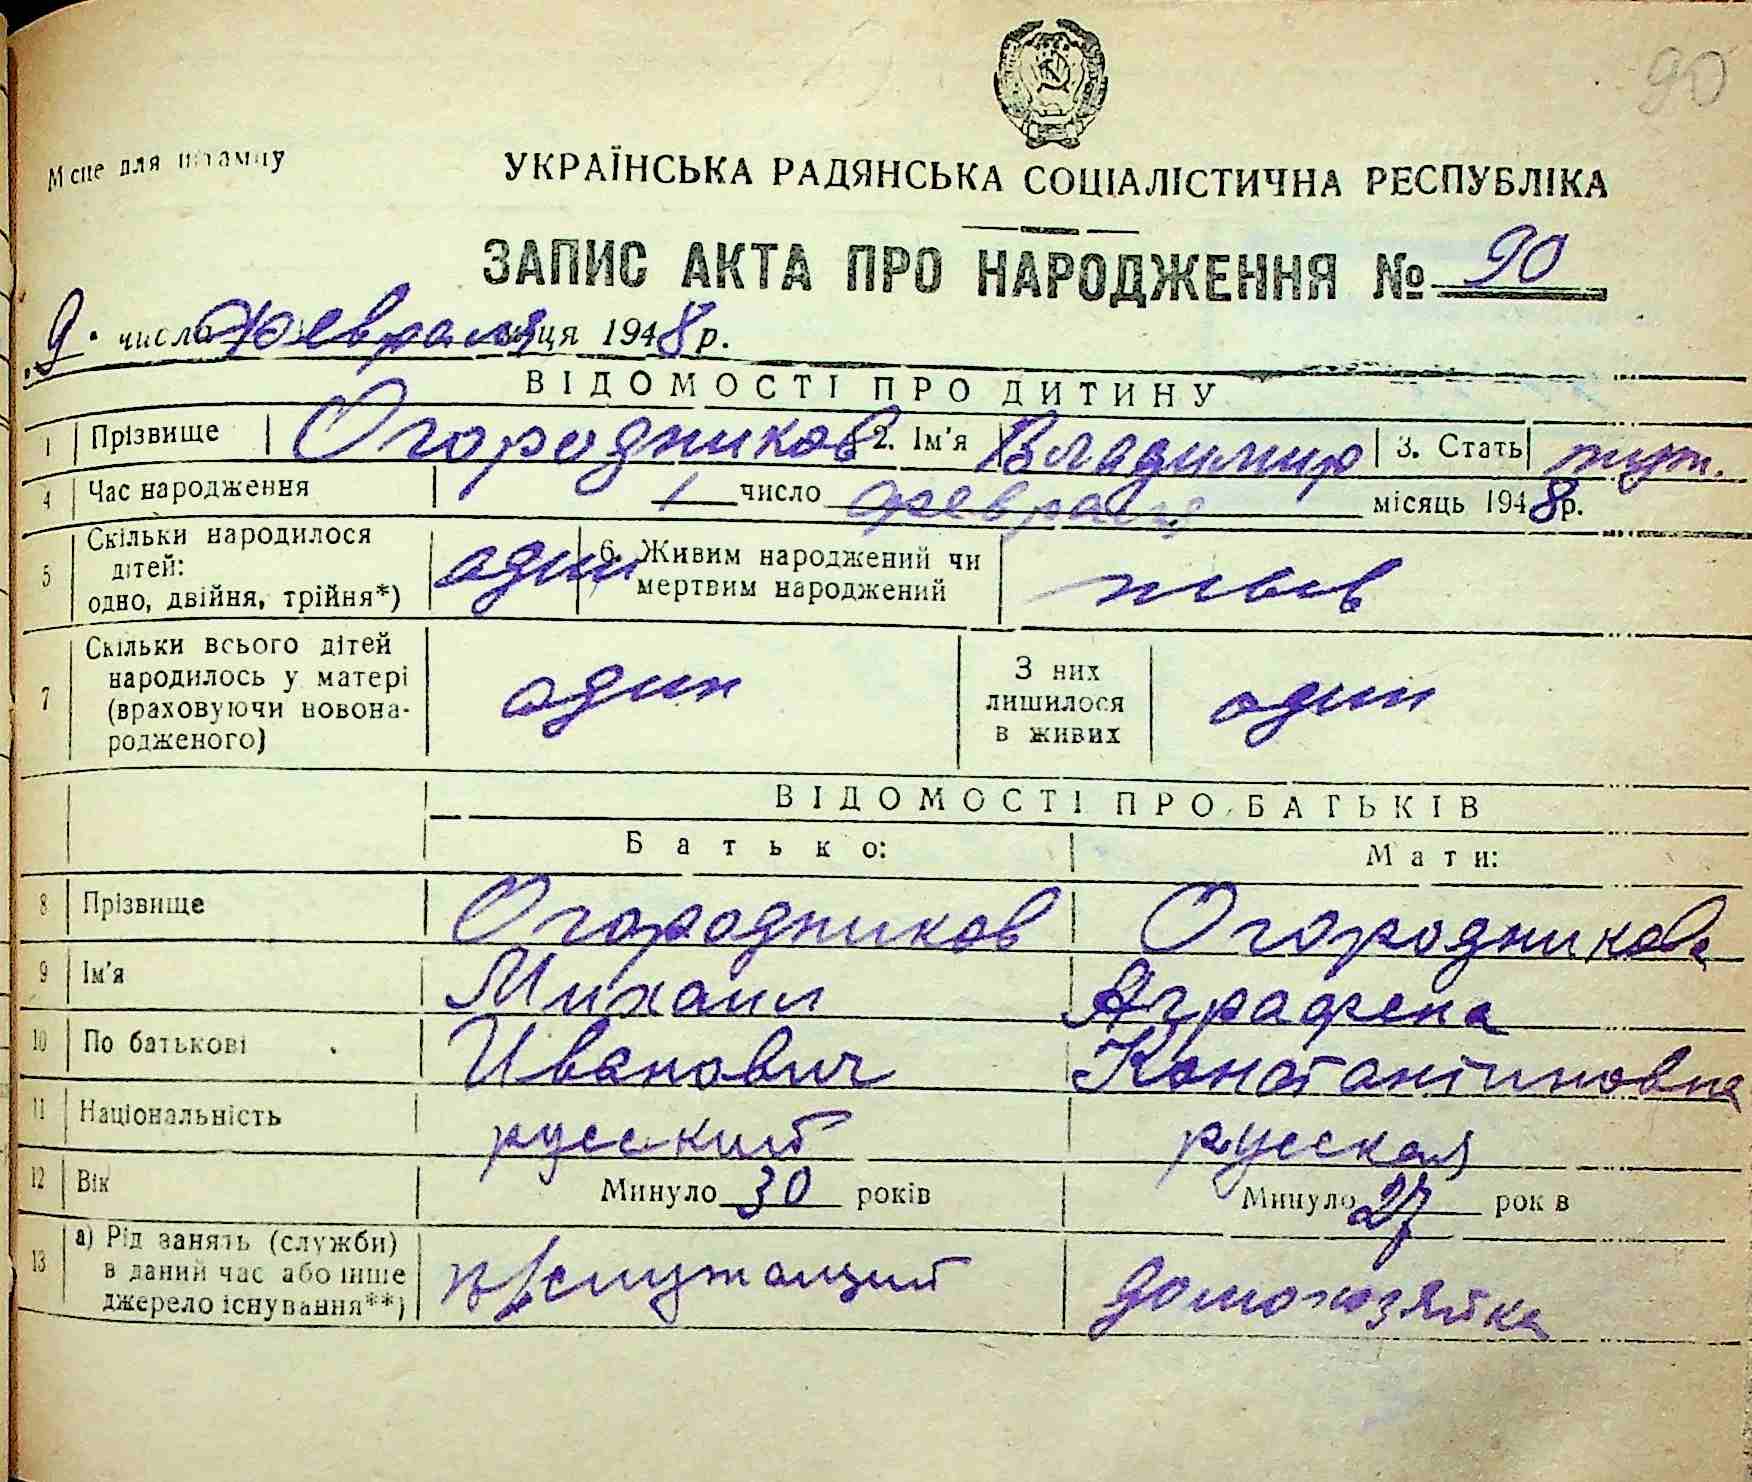 90
Місце для штампу
УКРАЇНСЬКА РАДЯНСЬКА СОЦІАЛІСТИЧНА РЕСПУБЛІКА
ЗАПИС АКТА ПРО НАРОДЖЕННЯ № 90
9 числа февраля місяця 1948 р.
ВІДОМОСТІ ПРО ДИТИНУ
1 Прізвище Огородников 2. Ім'я Владимир 3. Стать муж.
4 Час народження 1 число февраля місяць 1948 р.
5 Скільки народилося дітей: одно, двійня, трійня*) один 6. Живим народжений чи мертвим народжений жив
7 Скільки всього дітей народилось у матері (враховуючи новонародженого) один З них лишилося в живих один
ВІДОМОСТІ ПРО БАТЬКІВ
Батько: Мати:
8 Прізвище Огородников Огородникова
9 Ім'я Михаил Аграфена
10 По батькові Иванович Константиновна
11 Національність русский русская
12 Вік Минуло 30 років Минуло 27 років
13 а) Рід занять (служби) в даний час або інше джерело існування**) в/служащий домохозяйка